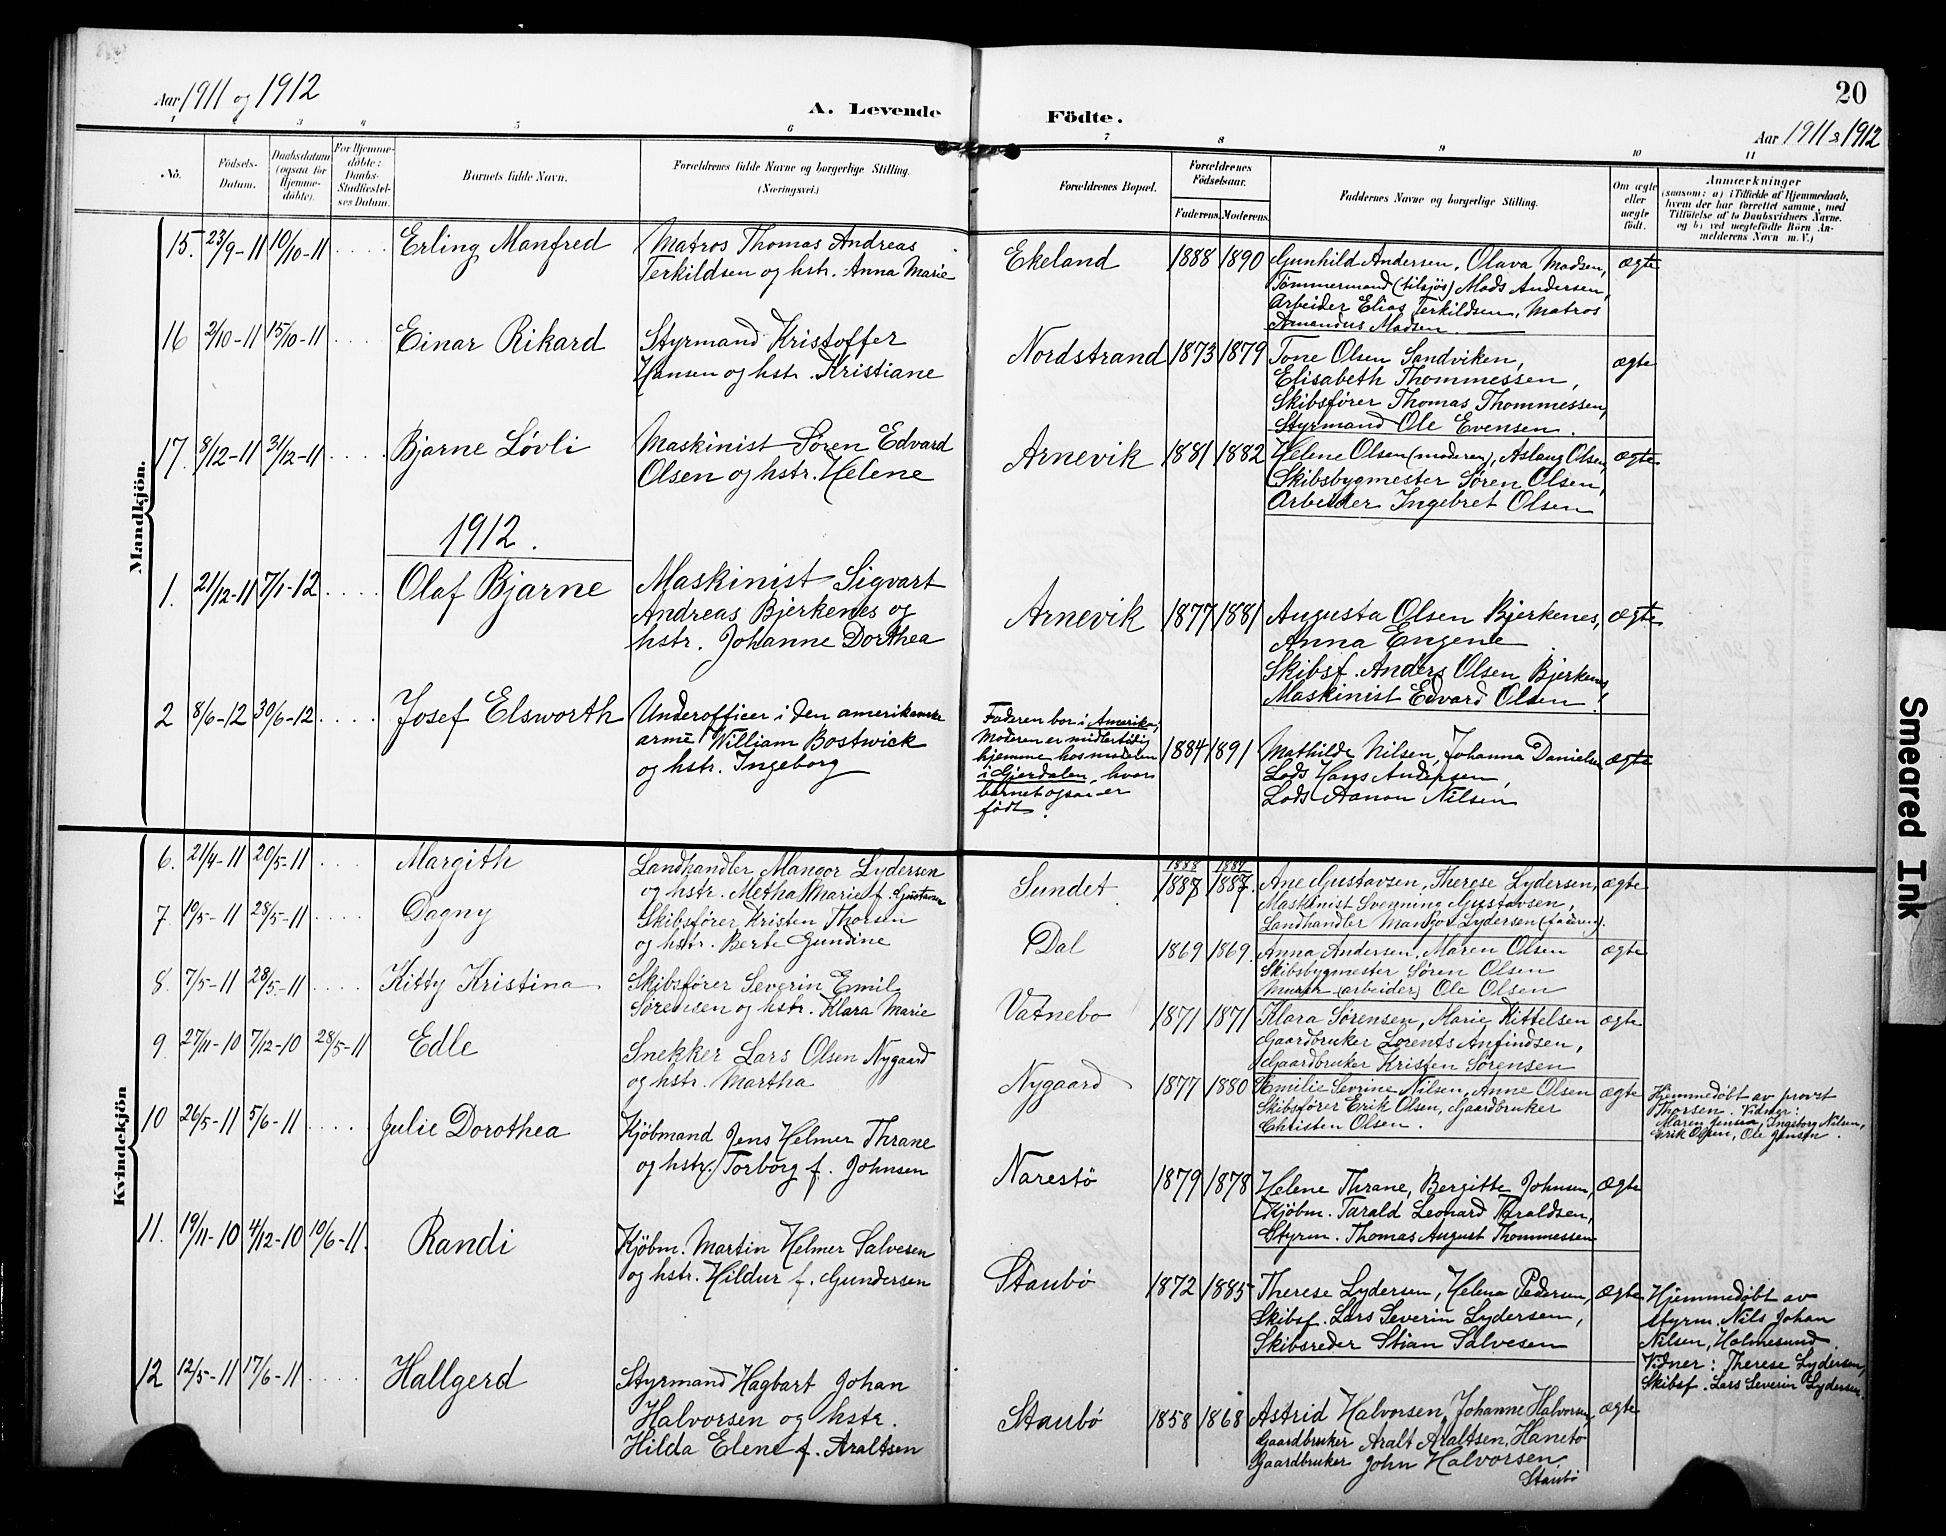 Aar 1911 og 1912
A. Levende
Födte.
20
Aar 1911 & 1912
1 3 4 5 6 7 8 9 10 11
No.
Födsels-
Datum.
Daabsdatum
(ogsaa for
Hjemme-
döbte).
For Hjemme-
döbte:
Daabs-
Stadfæstel-
ses Datum.
Barnets fulde Navn.
Forældrenes fulde Navne og borgerlige Stilling.
(Næringsvei.)
Forældrenes Bopæl.
Forældrenes
Födselsaar.
Faderens. Moderens.
Faddernes Navne og borgerlige Stilling.
Om ægte
eller
uægte
födt.
Anmærkninger
(saasom: a) i Tilfælde af Hjemmedaab,
hvem der har forrettet samme, med
Tilföielse af to Daabsvidners Navne.
og b) ved uægtefödte Börn An-
melderens Navn m. V.)
Mandkjön.
15. 23/9-11 10/10-11 Erling Manfred
Matros Thomas Andreas
Terkildsen og hstr. Anna Marie
Ekeland 1888 1890
Gunhild Andersen, Olava Madsen,
Tømmermand (tilsjøs) Mads Andersen,
Arbeider Elias Terkildsen, Matros
Amandus Madsen
ægte
16 2/10-11 15/10-11 Einar Rikard
Styrmand Kristoffer
Hansen og hstr. Kristiane
Nordstrand 1873 1879
Tone Olsen Sandviken,
Elisabeth Thommessen,
Skibsfører Thomas Thommessen,
Styrmand Ole Evensen.
ægte
17. 8/12-11 31/12-11 Bjarne Løvli
Maskinist Søren Edvard
Olsen og hstr. Helene
Arnevik 1881 1882
Helene Olsen (moderen), Aslaug Olsen,
Skibsbygmester Søren Olsen,
Arbeider Ingebret Olsen
ægte
1912.
1. 21/12-11 7/1-12 Olaf Bjarne
Maskinist Sigvart
Andreas Bjerkenes og
hstr. Johanne Dorthea
Arnevik 1877 1881
Augusta Olsen Bjerkenes,
Anna Engene
Skibsf. Anders Olsen Bjerkenes,
Maskinist Edvard Olsen.
ægte
2 8/6-12 30/6-12 Josef Elsworth
Underofficer i den amerikanske
armé William Bostwick
og hstr. Ingeborg
Faderen bor i Amerika;
Moderen er midlertidig
hjemme hos moderen
i Gjerdalen, hvor
barnet ogsaa er
født.
1884 1891
Mathilde Nilsen, Johanna Danielsen
Lods Hans Andersen,
Lods Aanon Nilsen
ægte
Kvindekjön
6. 21/4-11 20/5-11 Margith
Landhandler Mangor Lydersen
og hstr. Metha Marie f. Gustavsen
Sundet. 1888 1887
1887 1887.
Ane Gustavsen, Therese Lydersen,
Maskinist Svenning Gustavsen,
Landhandler Mangor Lydersen (faderen).
ægte
7. 19/5-11 28/5-11 Dagny
Skibsfører Kristen Thorsen
og hstr. Berte Gundine
Dal 1869 1869.
Anna Andersen, Maren Olsen
Skibsbygmester Søren Olsen
Murer (arbeider) Ole Olsen
ægte
8. 7/5-11 28/5-11 Kitty Kristina
Skibsfører Severin Emil
Sørensen og hstr. Klara Marie
Vatnebo 1871 1871
Klara Sørensen, Marie Kittelsen
Gaardbruker Lorents Anfindsen,
Gaardbruker Kristen Sørensen
ægte
9. 27/11-10 7/12-10 28/5-11 Edle
Snekker Lars Olsen Nygaard
og hstr. Martha
Nygaard 1877 1880
Emilie Sevrine Nilsen, Anne Olsen
Skibsfører Erik Olsen, Gaardbruker
Christen Olsen.
ægte
Hjemmedøbt av provst
Thorsen. Vidner:
Maren Jensen, Ingeborg Nilsen,
Erik Olsen, Ole Jensen.
10 26/5-11 5/6-11 Julie Dorothea
Kjøbmand Jens Helmer Thrane
og hstr. Torborg f. Johnsen
Narestø 1879 1878
Helene Thrane, Bergitte Johnsen,
Kjøbm. Tarald Leonard Taraldsen,
Styrm. Thomas August Thommessen
ægte
11. 19/11-10 4/12-10 10/6-11. Randi
Kjøbm. Martin Helmer Salvesen
og hstr. Hildur f. Gundersen
Staubø 1872 1885
Therese Lydersen, Helena Pedersen,
Skibsf. Lars Severin Lydersen,
Skibsreder Stian Salvesen
ægte
Hjemmedøbt av
styrm. Nils Johan
Nilsen, Holmesund.
Vidner: Therese Lydersen,
Skibsf. Lars Severin Lydersen.
12 12/5-11 17/6-11 Hallgerd
Styrmand Hagbart Johan
Halvorsen og hstr.
Hilda Elene f. Araltsen
Staubø 1858 1868
Astrid Halvorsen, Johanne Halvorsen,
Gaardbruker Aralt Araltsen, Hanetø
Gaardbruker John Halvorsen,
Staubø
ægte
Smeared Ink